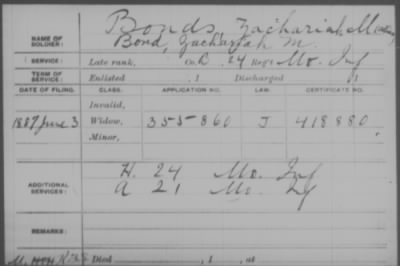 Bonds, Zachariah M
NAME OF SOLDIER: Bond, Zachariah M.
SERVICE: Late rank, Co. 24 Reg't Mo. Inf
TERM OF SERVICE: Enlisted , 1 Discharged , 1
DATE OF FILING. CLASS. APPLICATION NO. LAW. CERTIFICATE NO.
Invalid,
1887 June 3 Widow, 355860 J 418880
Minor,
ADDITIONAL SERVICES: H. 24 Mo. Inf
A 21 Mo. Inf
REMARKS:
Died , 1 , at